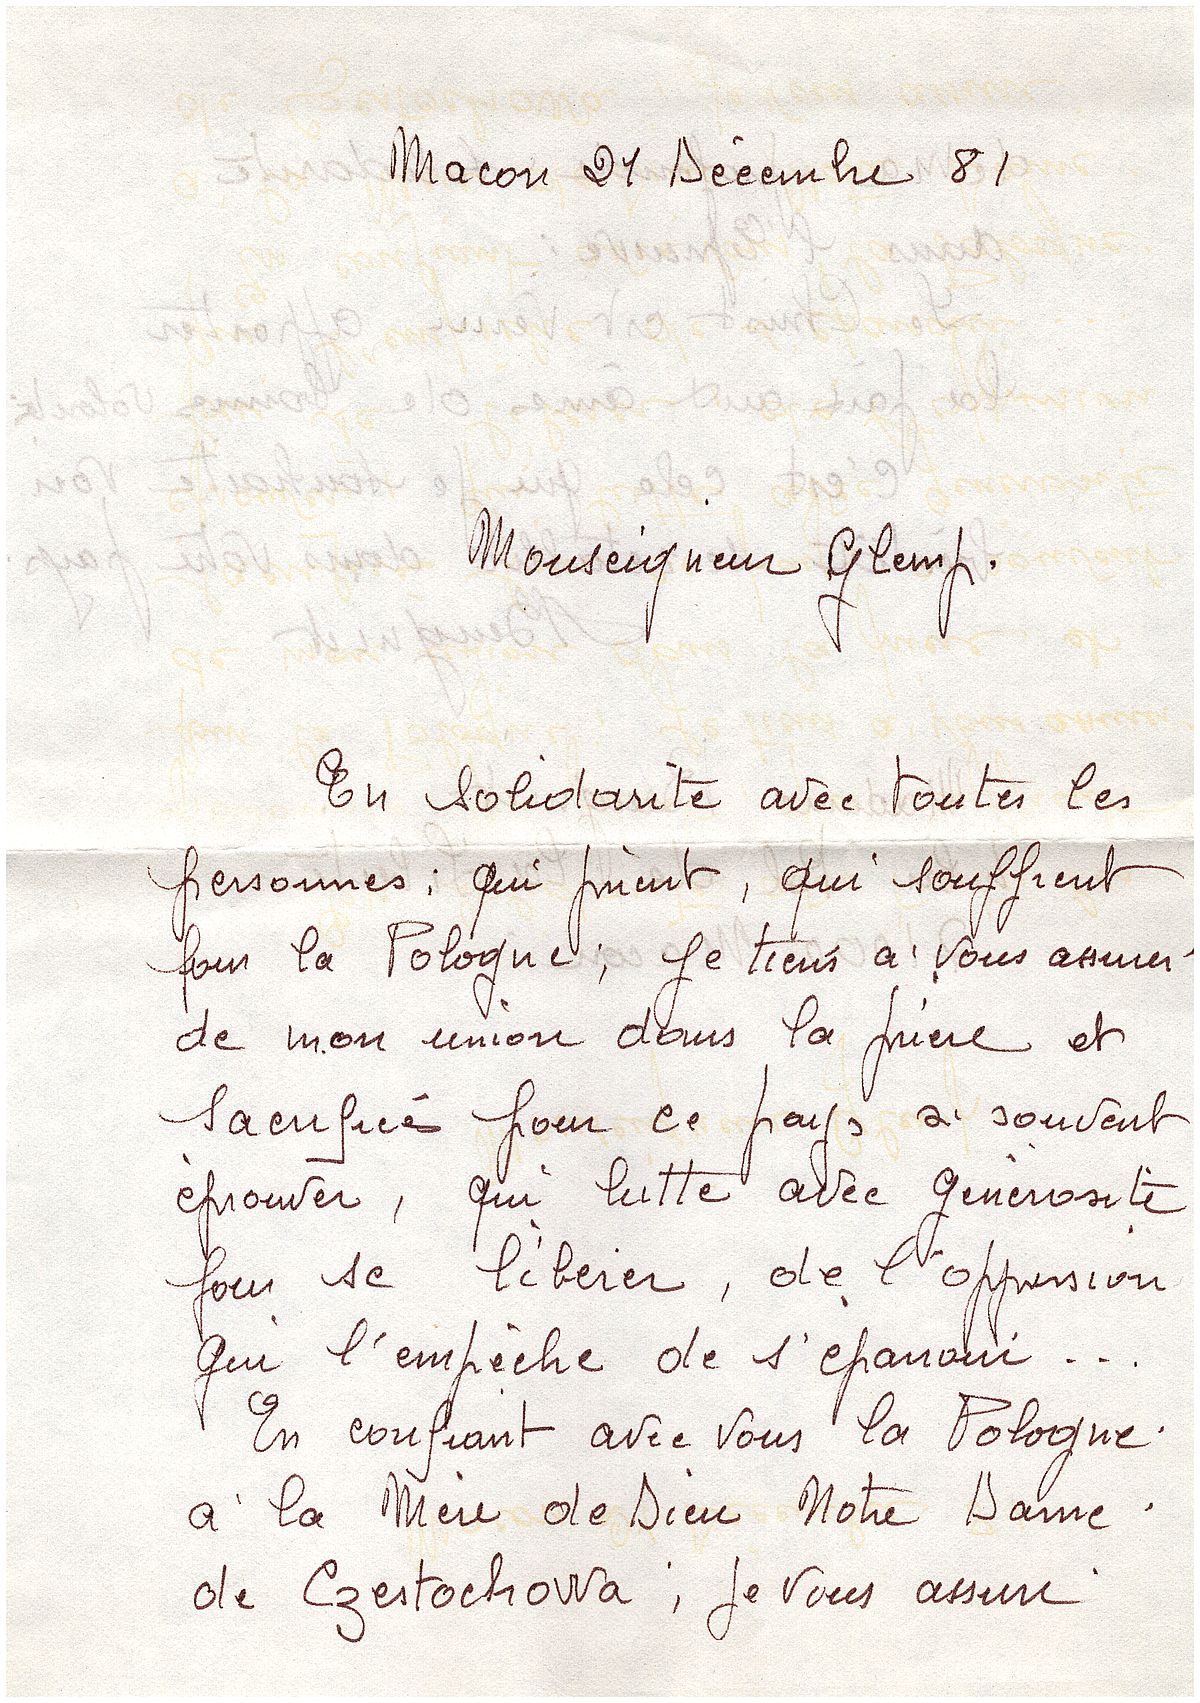 Macon 21 Décembre 81
Monseigneur Glemp.
En solidarité avec toutes les
personnes; qui prient, qui souffrent
pour la Pologne; je tiens à vous assurer
de mon union dans la prière et
sacrifice pour ce pays si souvent
éprouver, qui lutte avec générosité
pour se libérer, de l'oppression
qui l'empêche de s'épanouir...
En confiant avec vous la Pologne
à la Mère de Dieu Notre Dame
de Czestochowa; je vous assure